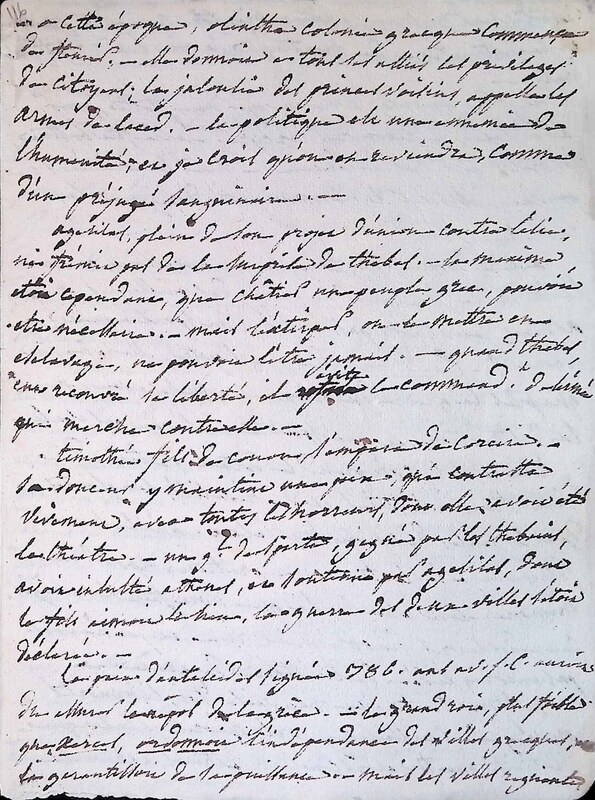 116
à cette époque, olinthe colonie grecque commença
de fleurir. — elle donnoit à tous ses alliés les privilèges
de citoyens; la jalousie des princes voisins, appella les
armes de laced. — la politique est une ennemie de
l'humanité, et je crois qu'on en reviendra, comme
d'un préjugé sanguinaire. —
agesilas, plein de son projet d'union contre l'asie,
ne frémit pas de la surprise de thebes. — la maxime
étoit cependant, que châtier un peuple grec, pouvoit
etre nécessaire. — mais l'extirper, ou le mettre en
esclavage, ne pouvoit l'être jamais. — quand thebes,
eut recouvré sa liberté, il évita le command.t d'armée
qui marcha contre elle. —
timothée fils de conon s'empara de corcire. —
sa douceur y maintint une paix qui contrasta
vivement, avec toutes les horreurs, dont elle avoit été
le théatre. — un g.l de sparte, gagné par les thebains,
avoit insulté athenes, et soutenu par agesilas, dont
le fils aimoit le sien, la guerre des deux villes s'étoit
déclarée. —
La paix d'antalcidas signée 386. ans av. J. C. auroit
du assurer le repos de la grèce. — le grand roi, plus foible
que xerces, ordonnoit l'indépendance des villes grecques,
la garantissoit de sa puissance. — mais les villes régnantes